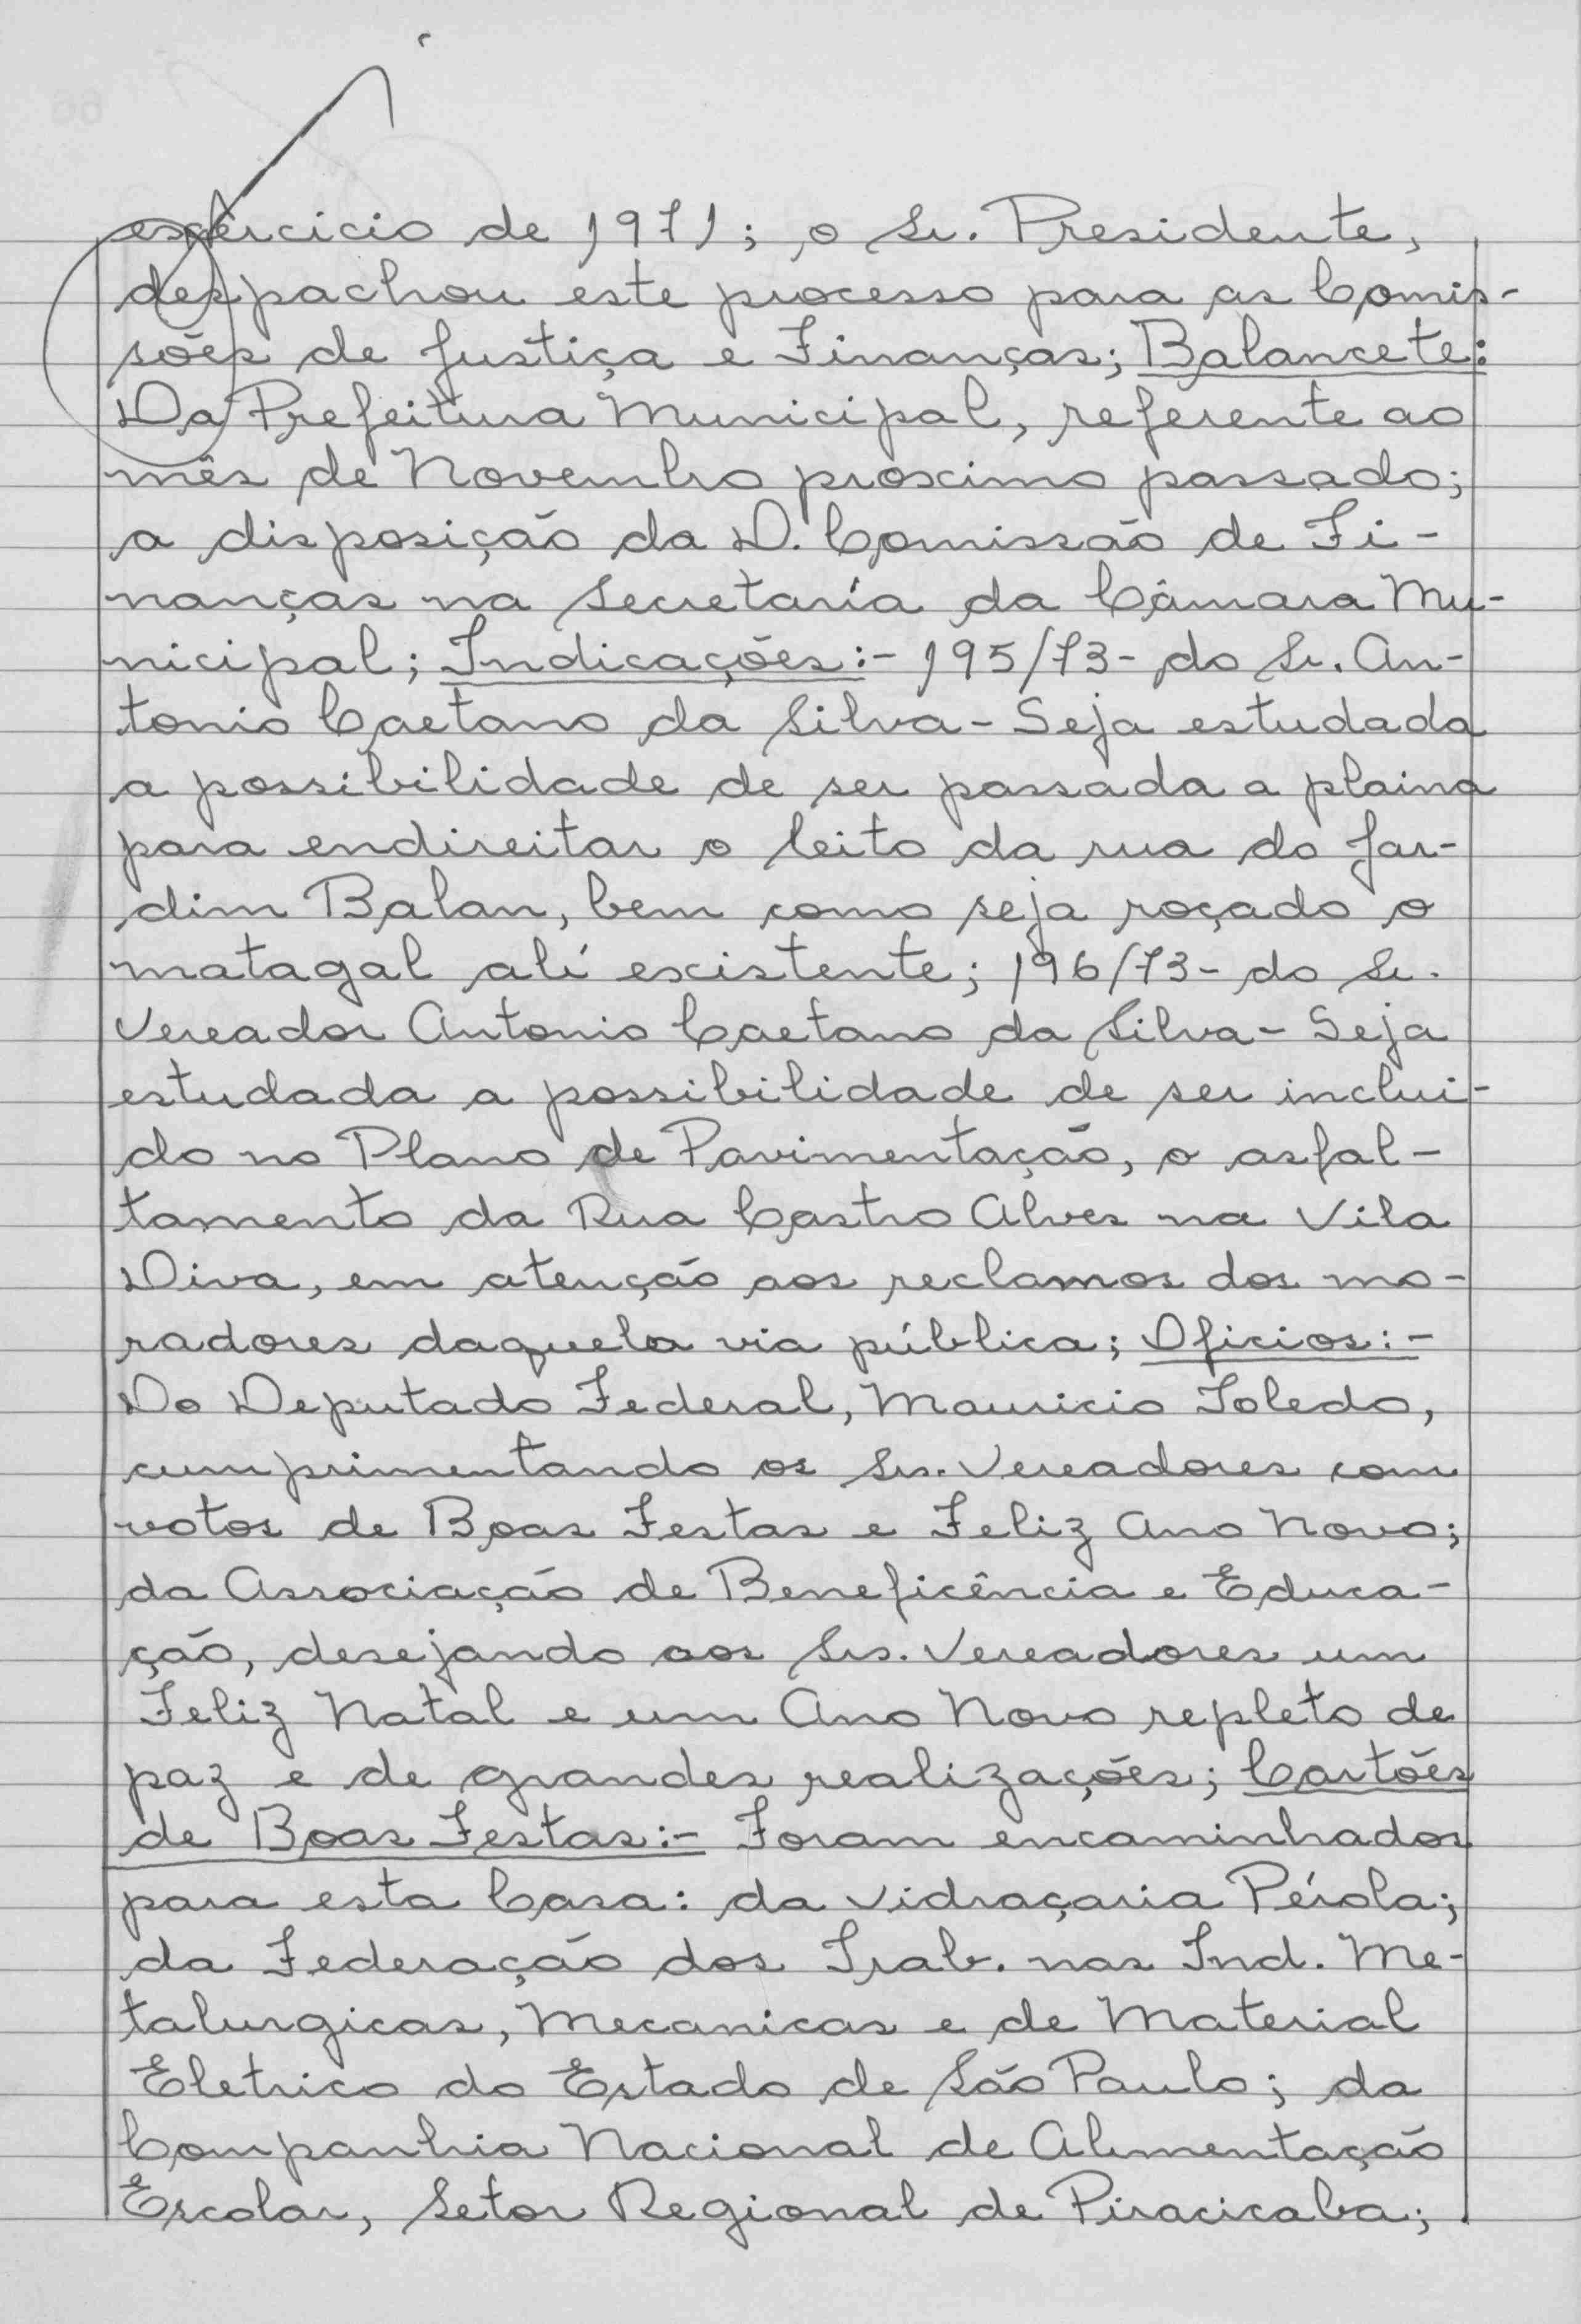 exercicio de 1971; o Sr. Presidente,
despachou este processo para as Comis-
sões de Justiça e Finanças; Balancete:
Da Prefeitura Municipal, referente ao
mês de Novembro proximo passado;
a disposição da D. Comissão de Fi-
nanças na Secretaría da Câmara Mu-
nicipal; Indicações:- 195/73- do Sr. An-
tonio Caetano da Silva- Seja estudada
a possibilidade de ser passada a plaina
para endireitar o leito da rua do Jar-
dim Balan, bem como seja roçado o
matagal alí existente; 196/73- do Sr.
Vereador Antonio Caetano da Silva- Seja
estudada a possibilidade de ser inclui-
do no Plano de Pavimentação, o asfal-
tamento da Rua Castro Alves na Vila
Diva, em atenção aos reclamos dos mo-
radores daquela via pública; Oficios:-
Do Deputado Federal, Mauricio Toledo,
cumprimentando os Srs. Vereadores com
votos de Boas Festas e Feliz Ano Novo;
da Associação de Beneficência e Educa-
ção, desejando aos Srs. Vereadores um
Feliz Natal e um Ano Novo repleto de
paz e de grandes realizações; Cartões
de Boas Festas:- Foram encaminhados
para esta Casa: da Vidraçaria Pérola;
da Federação dos Trab. nas Ind. Me-
talurgicas, Mecanicas e de Material
Eletrico do Estado de São Paulo; da
Companhia Nacional de Alimentação
Escolar, Setor Regional de Piracicaba;